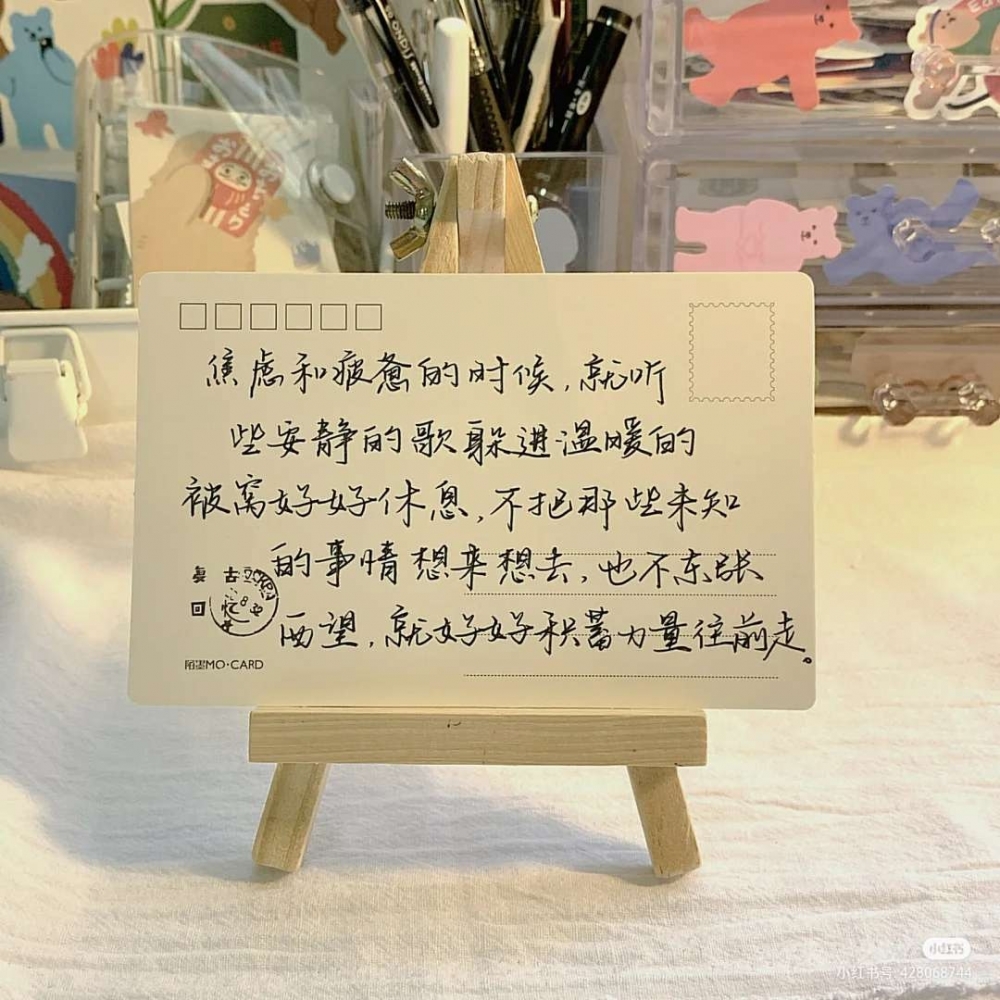 焦虑和疲惫的时候，就听
些安静的歌躲进温暖的
被窝好好休息，不把那些未知
的事情想来想去，也不东张
西望，就好好积蓄力量往前走。
陌墨MO·CARD
小红书
小红书号：428068744